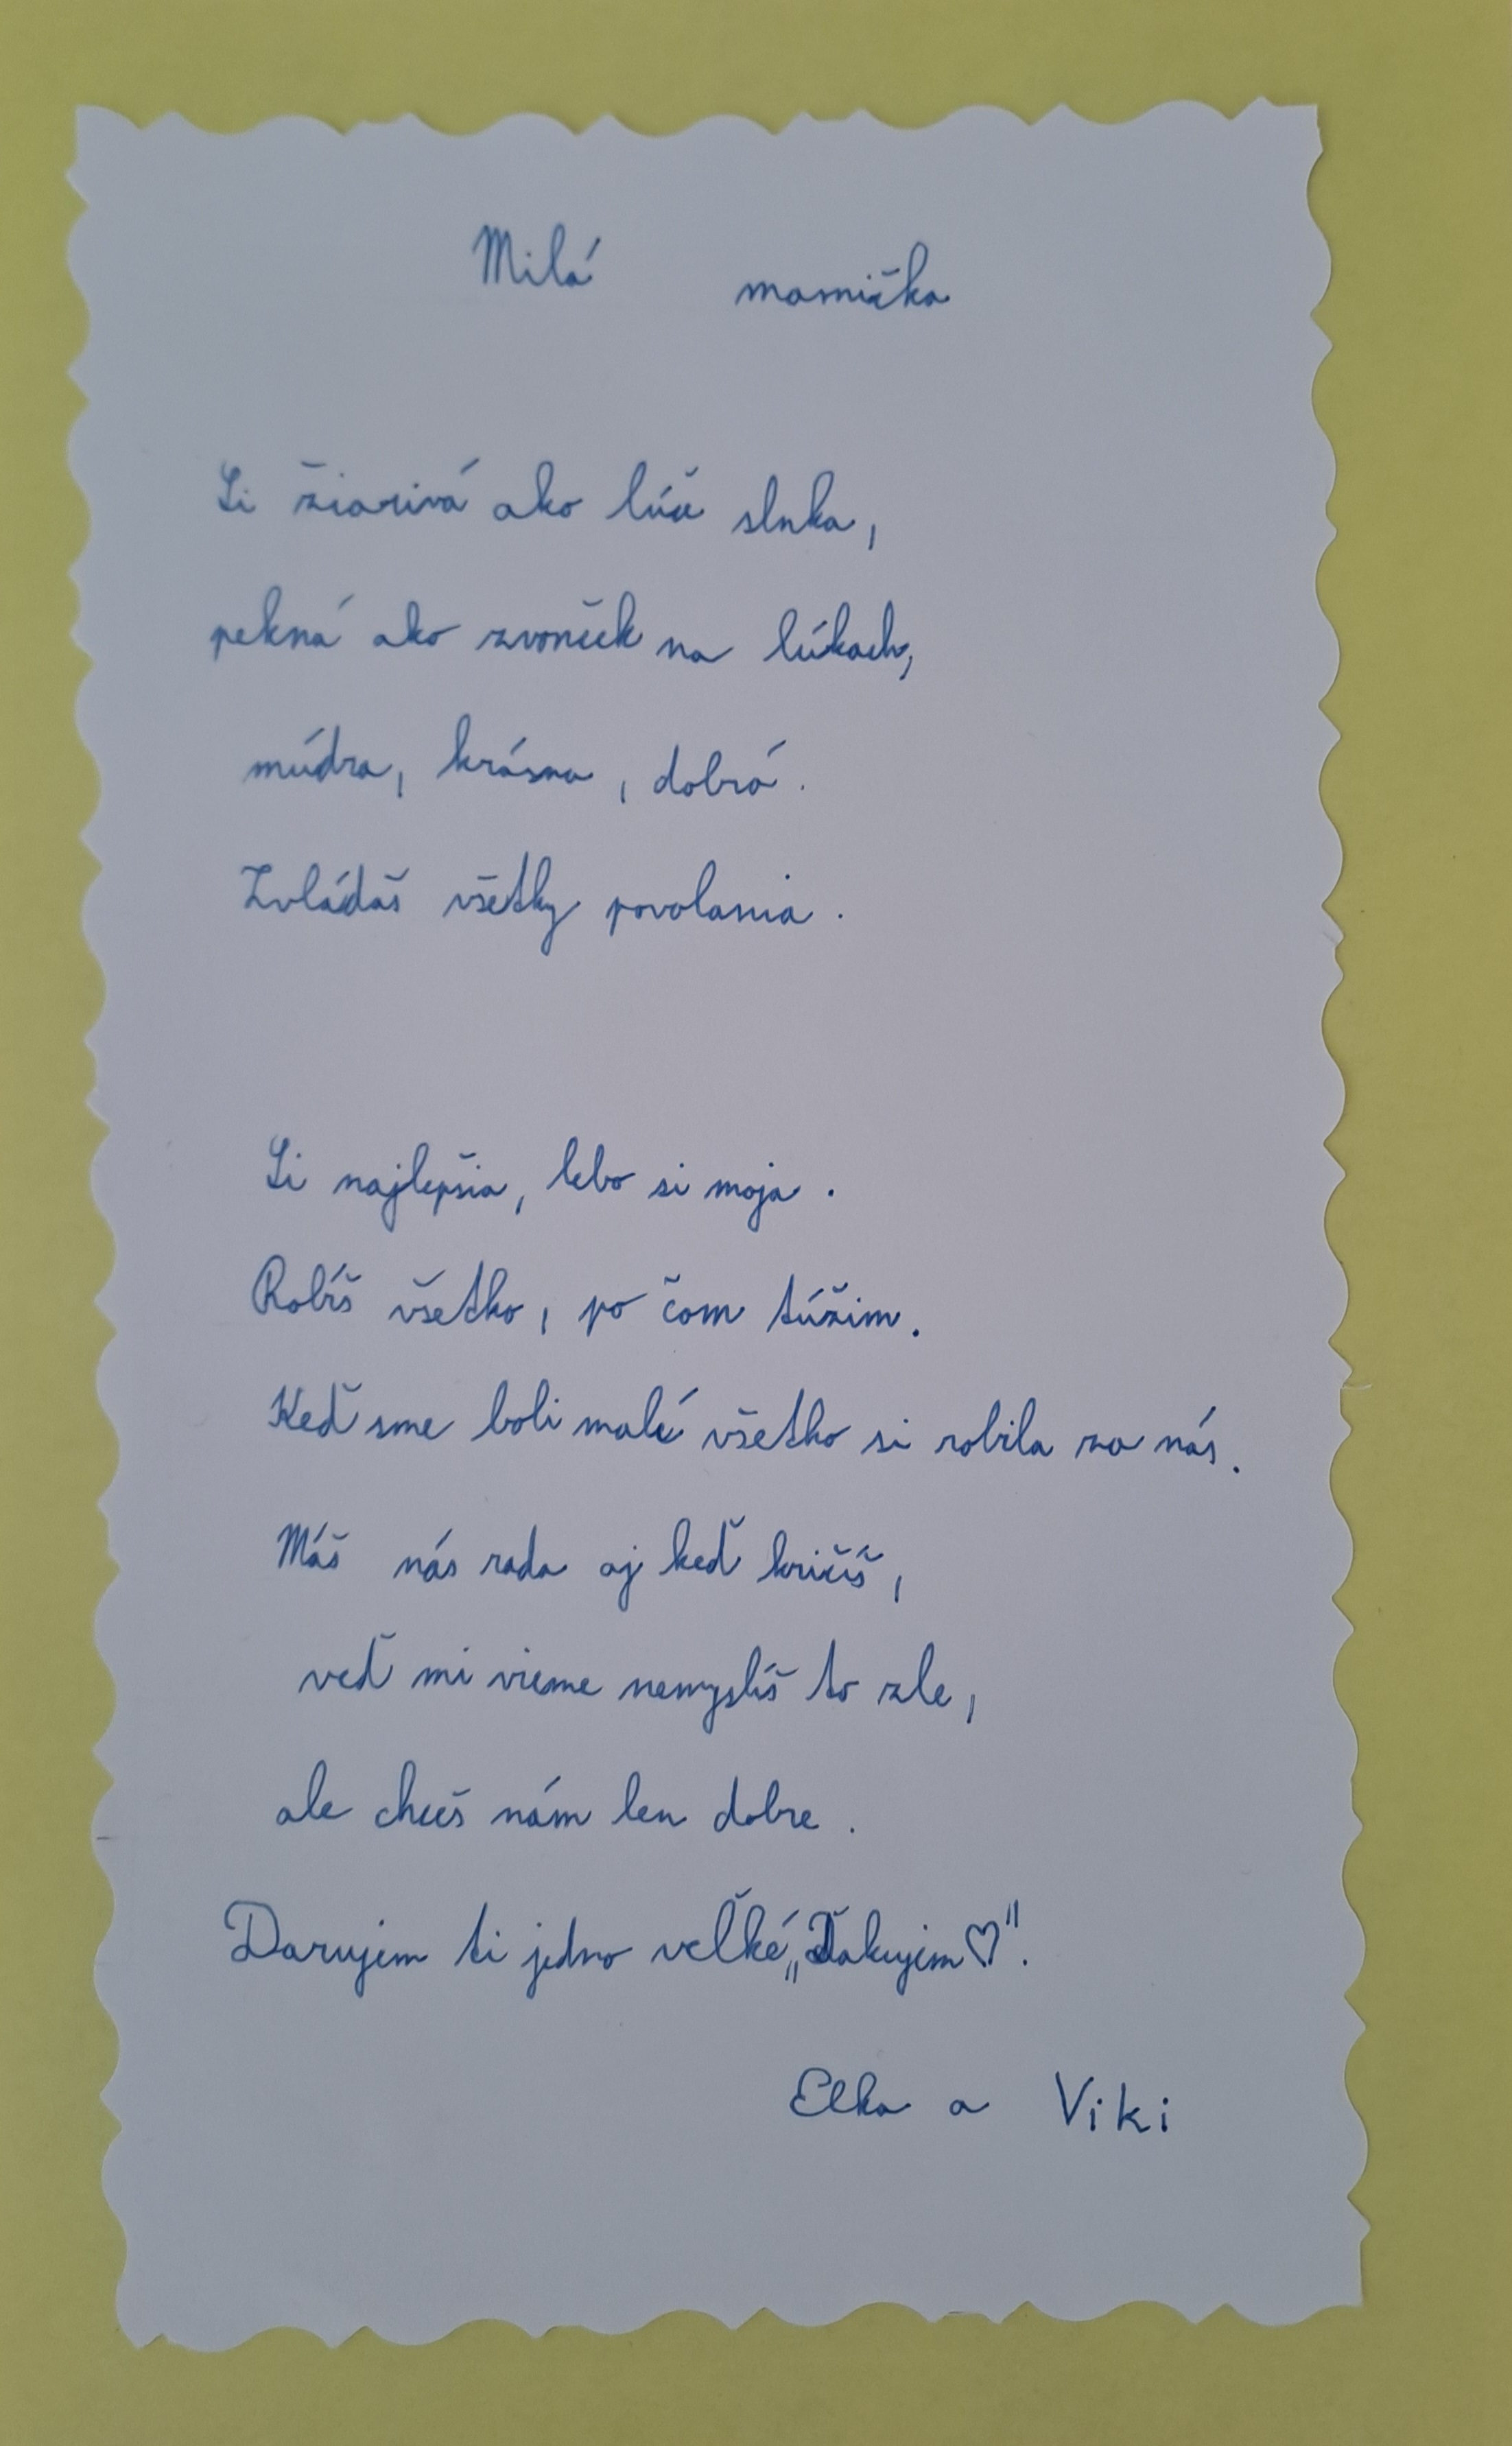 Milá mamička
Si žiarivá ako lúč slnka,
pekná ako zvonček na lúkach,
múdra, krásna, dobrá.
Zvládaš všetky povolania.
Si najlepšia, lebo si moja.
Robíš všetko, po čom túžim.
Keď sme boli malé všetko si robila za nás.
Máš nás rada aj keď kričíš,
veď mi vieme nemyslíš to zle,
ale chceš nám len dobre.
Darujem ti jedno veľké „Ďakujem♡".
Elka a Viki